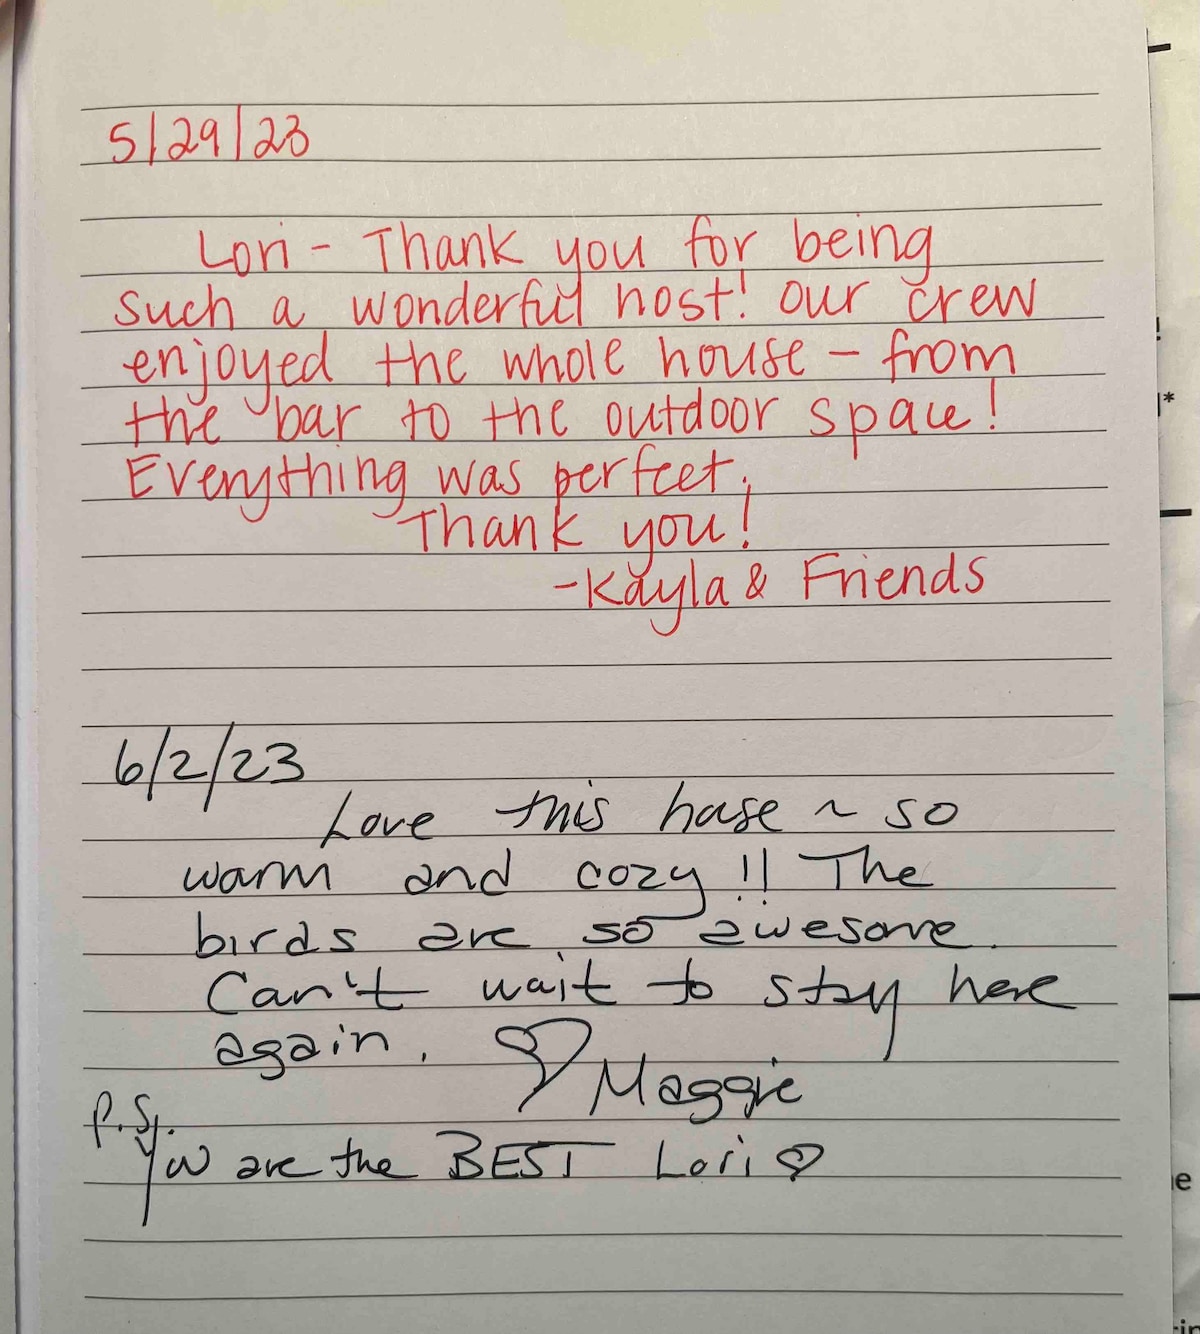 5/29/23
Lori - Thank you for being
such a wonderful host! Our crew
enjoyed the whole house - from
the bar to the outdoor space!
Everything was perfect.
Thank you!
-Kayla & Friends
6/2/23
Love this house ~ so
warm and cozy!! The
birds are so awesome.
Can't wait to stay here
again. ♡ Maggie
P.S.
You are the BEST Lori ♡